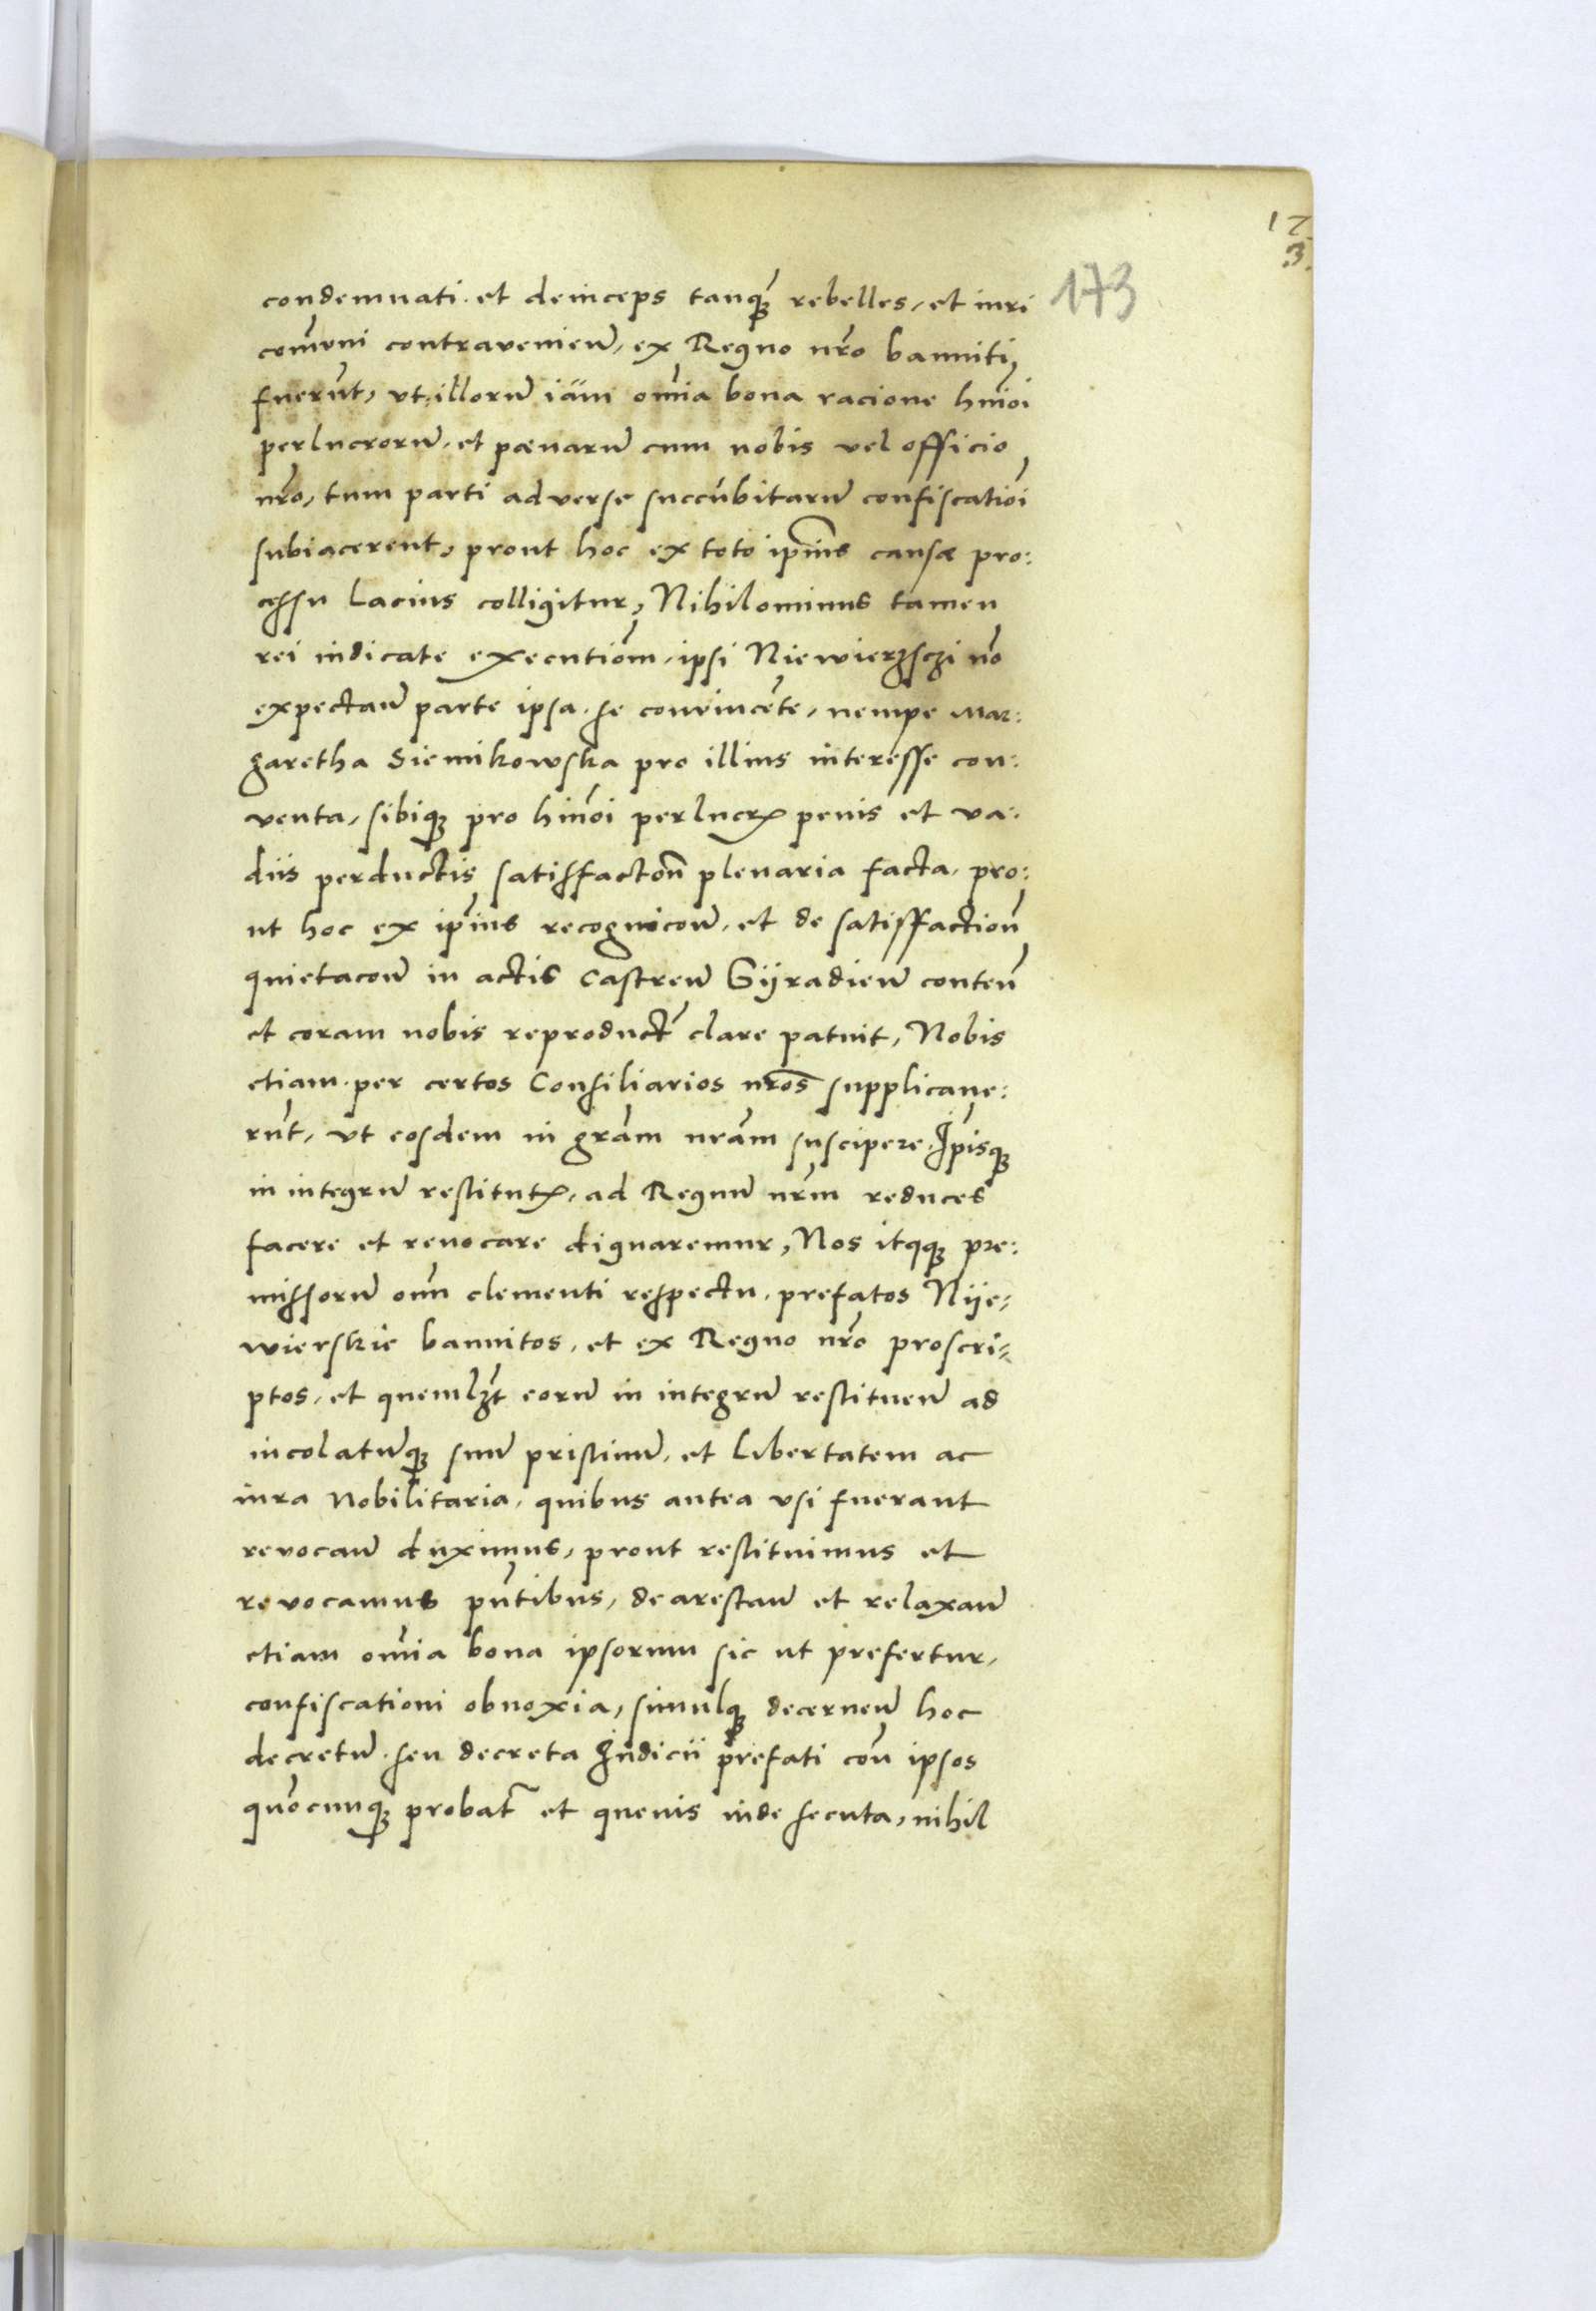 17
3.
173
condemnati. et deinceps tanq̃ꝫ rebelles, et iuri
com̃uni contraveniẽn, ex Regno nr̃o banniti,
fuerũt, vt illorũ iam om̃ia bona racione hm̃oi
perlucrorũ, et pænarũ cum nobis vel officio
nr̃o, tum parti adverse succubitarũ confiscatioĩ
subiacerent, prout hoc ex toto ip̃ius causæ pro:
cessu lacius colligitur, Nihilominus tamen
rei iudicate executiõm, ipsi Niewierzsczi nõ
expectañ parte ipsa. se convincẽte, nempe Mar:
garetha Siemikowska pro illius interesse con:
venta, sibiqꝫ pro hm̃oi perlucrꝭ penis et va:
diis perductis satisfactioñ plenaria facta, pro:
ut hoc ex ip̃ius recognicoñ, et de satisfactioñ
quietacoñ in actis Castreñ Siiradieñ conteñ
et coram nobis reproduct̃ clare patuit, Nobis
etiam. per certos Consiliarios nr̃os supplicaue:
rũt, vt eosdem in gr̃am nr̃am suscipere. Ip̃isqꝫ
in integrũ restitutꝭ, ad Regnũ nr̃m reduces
facere et reuocare dignaremur, Nos itqꝫ pre:
missorũ om̃ clementi respectu, prefatos Niie:
wierskie bannitos, et ex Regno nr̃o proscri:
ptos, et quemlꝫt eorũ in integrũ restitueñ ad
incolatũqꝫ suũ pristinũ, et Libertatem ac
iura Nobilitaria, quibus antea vsi fuerant
revocañ duximus, prout restituimus et
revocamus pñtibus, dearestañ et relaxañ
etiam om̃ia bona ipsorum sic ut prefertur,
confiscationi obnoxia, simulqꝫ decerneñ hoc
decretũ. seu decreta Iudicii prefati coñ ipsos
quõcunqꝫ probat̃ et quevis inde secuta, nihil